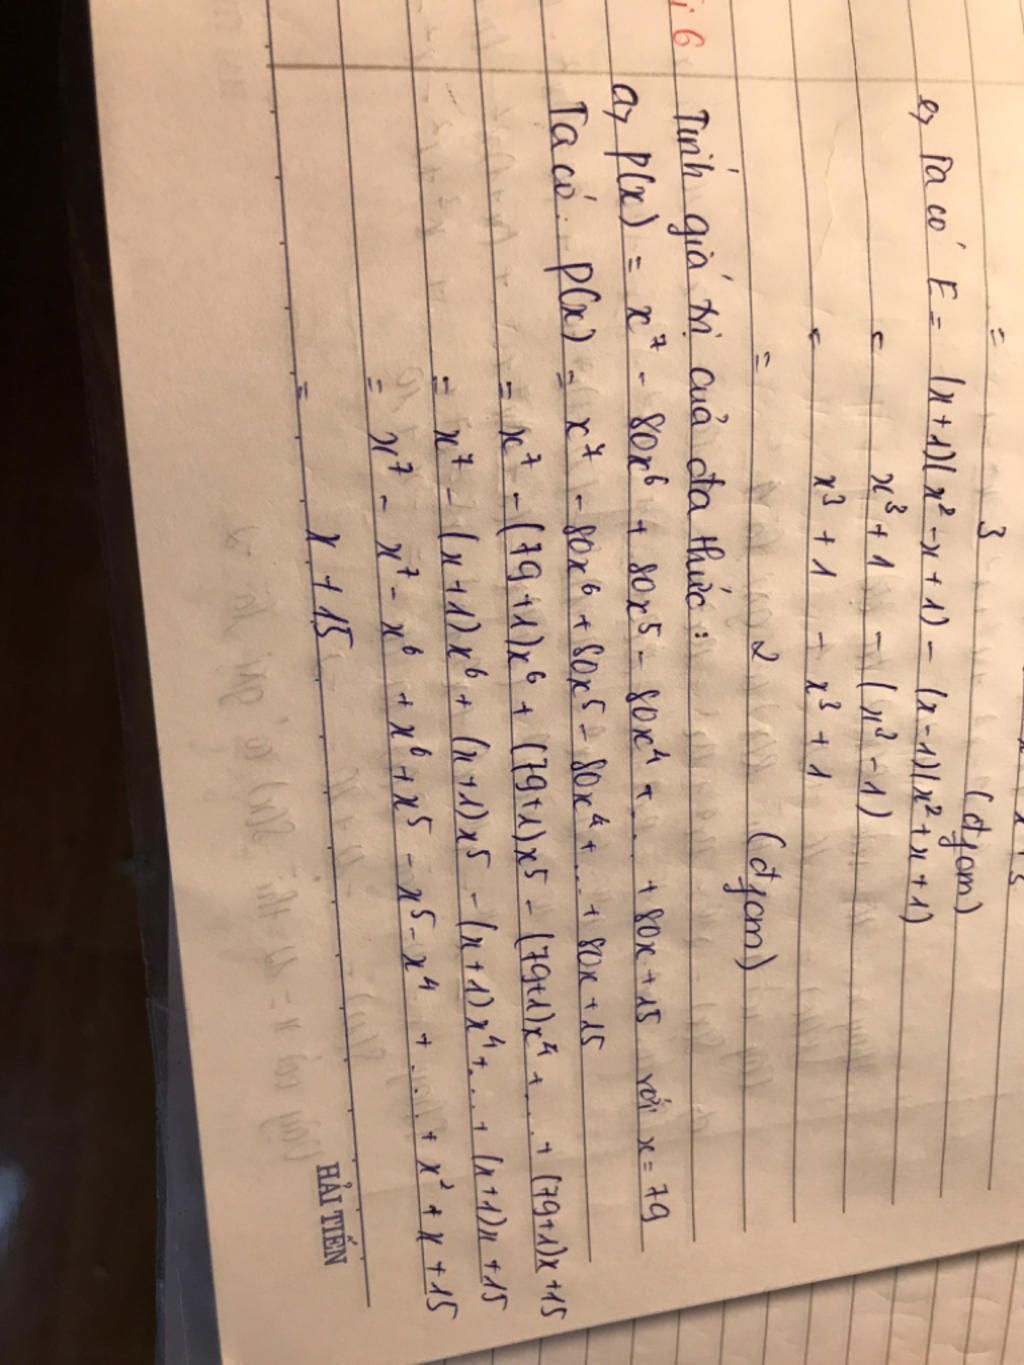 = 3 (đpcm)
e, Ta có E = (x+1)(x² - x + 1) - (x-1)(x² + x + 1)
= x³ + 1 - (x³ - 1)
= x³ + 1 - x³ + 1
= 2 (đpcm)
6
Tính giá trị của đa thức :
a, P(x) = x⁷ - 80x⁶ + 80x⁵ - 80x⁴ + ... + 80x + 15 với x = 79
Ta có: P(x) = x⁷ - 80x⁶ + 80x⁵ - 80x⁴ + ... + 80x + 15
= x⁷ - (79+1)x⁶ + (79+1)x⁵ - (79+1)x⁴ + ... + (79+1)x + 15
= x⁷ - (x+1)x⁶ + (x+1)x⁵ - (x+1)x⁴ + ... + (x+1)x + 15
= x⁷ - x⁷ - x⁶ + x⁶ + x⁵ - x⁵ - x⁴ + ... + x² + x + 15
= x + 15
HẢI TIẾN